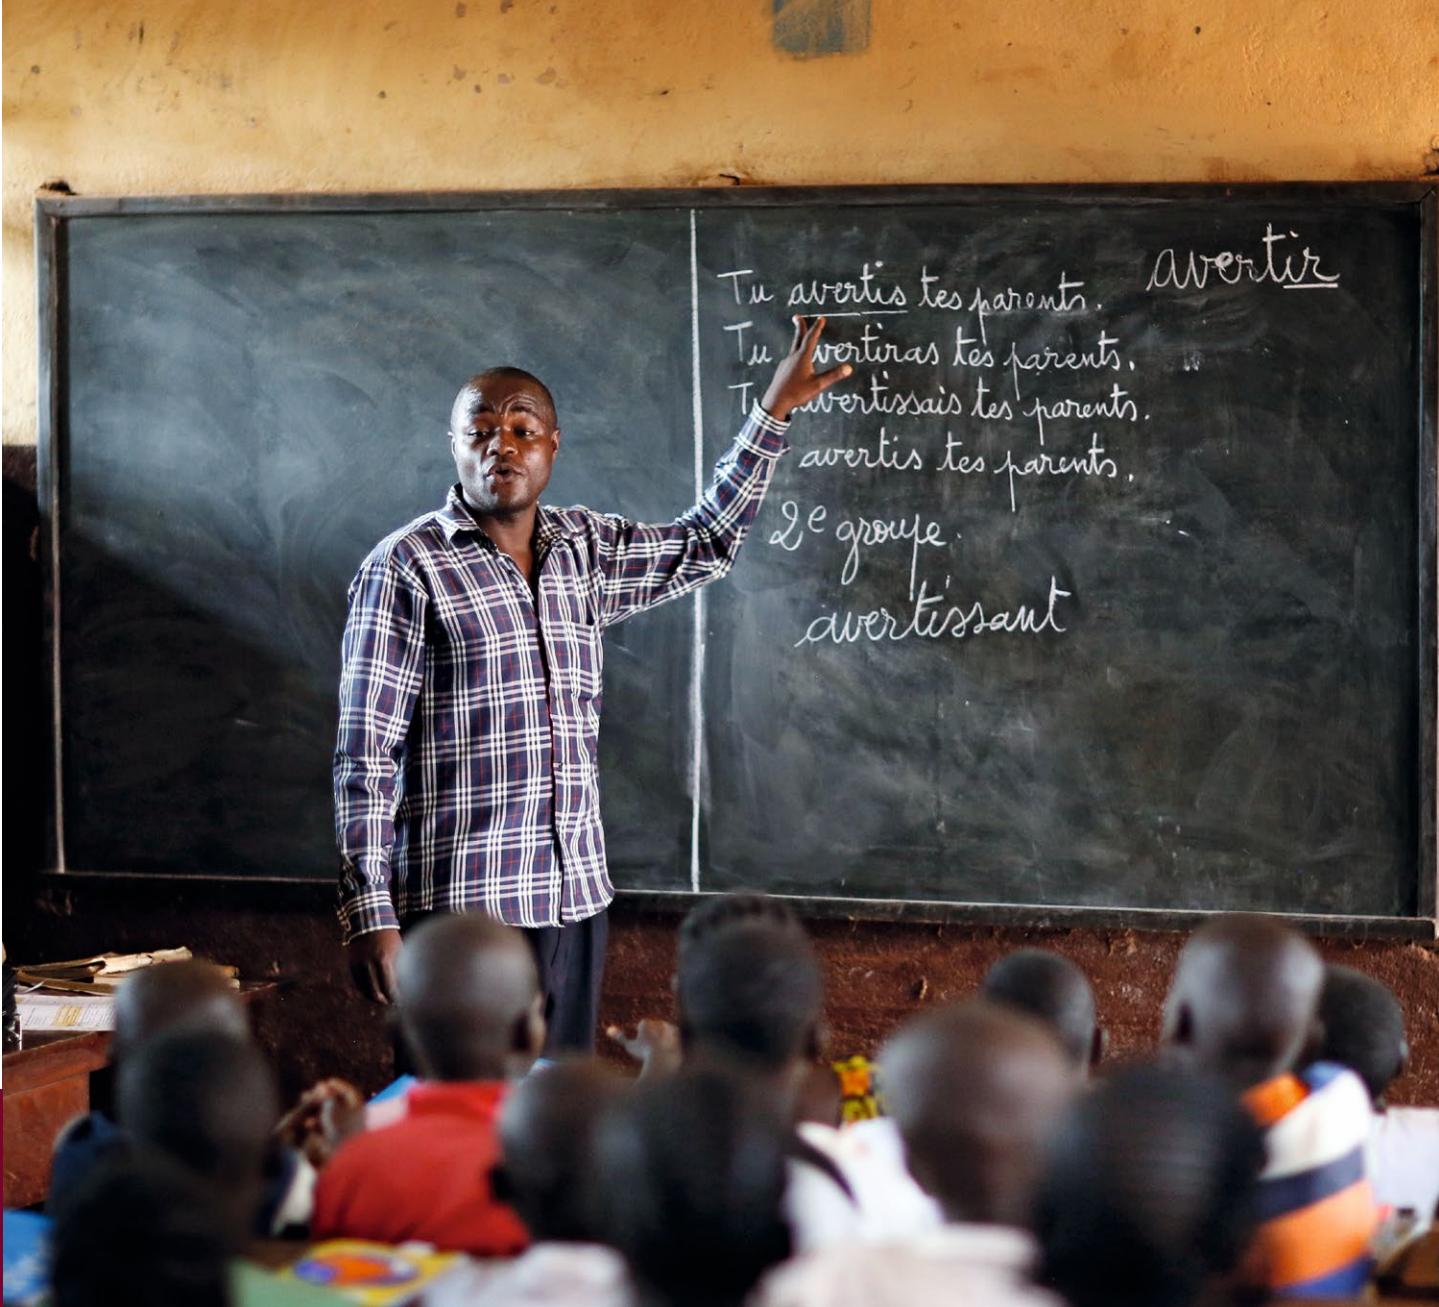 avertir
Tu avertis tes parents.
Tu avertiras tes parents.
Tu avertissais tes parents.
avertis tes parents.
2e groupe.
avertissant